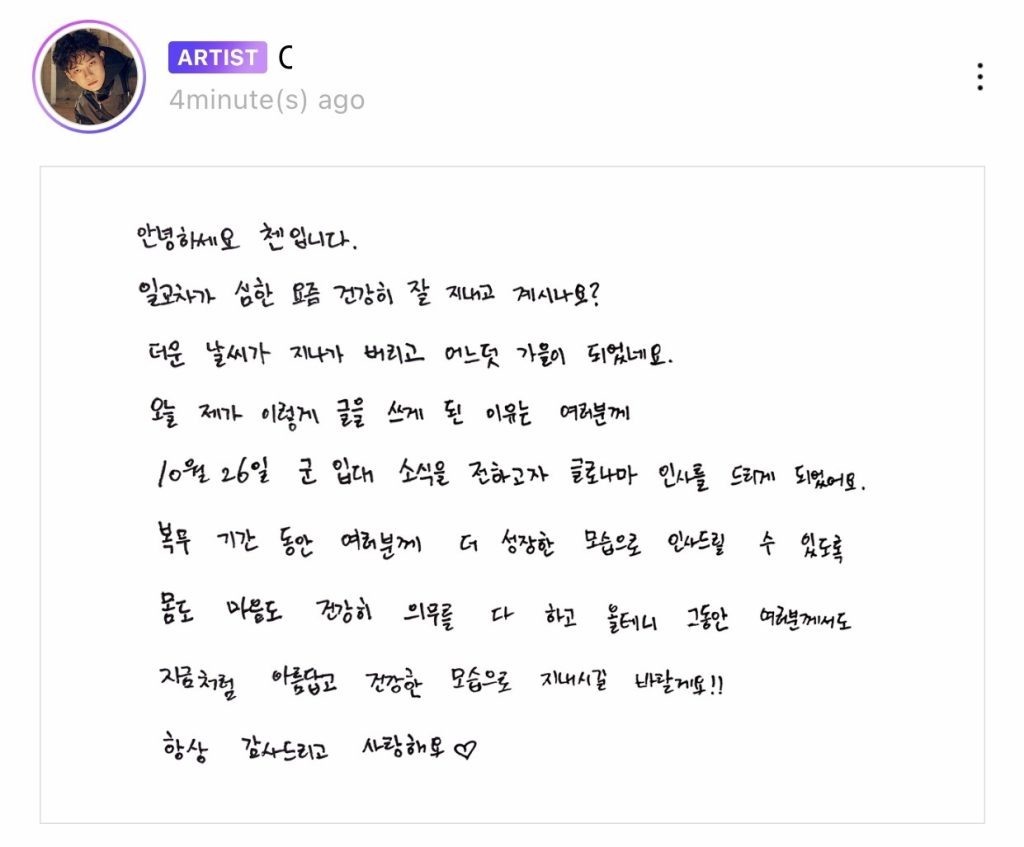 ARTIST C
4minute(s) ago
안녕하세요 첸입니다.
일교차가 심한 요즘 건강히 잘 지내고 계시나요?
더운 날씨가 지나가 버리고 어느덧 가을이 되었네요.
오늘 제가 이렇게 글을 쓰게 된 이유는 여러분께
10월 26일 군 입대 소식을 전하고자 글로나마 인사를 드리게 되었어요.
복무 기간 동안 여러분께 더 성장한 모습으로 인사드릴 수 있도록
몸도 마음도 건강히 의무를 다 하고 올테니 그동안 여러분께서도
지금처럼 아름답고 건강한 모습으로 지내시길 바랄게요!!
항상 감사드리고 사랑해요♡